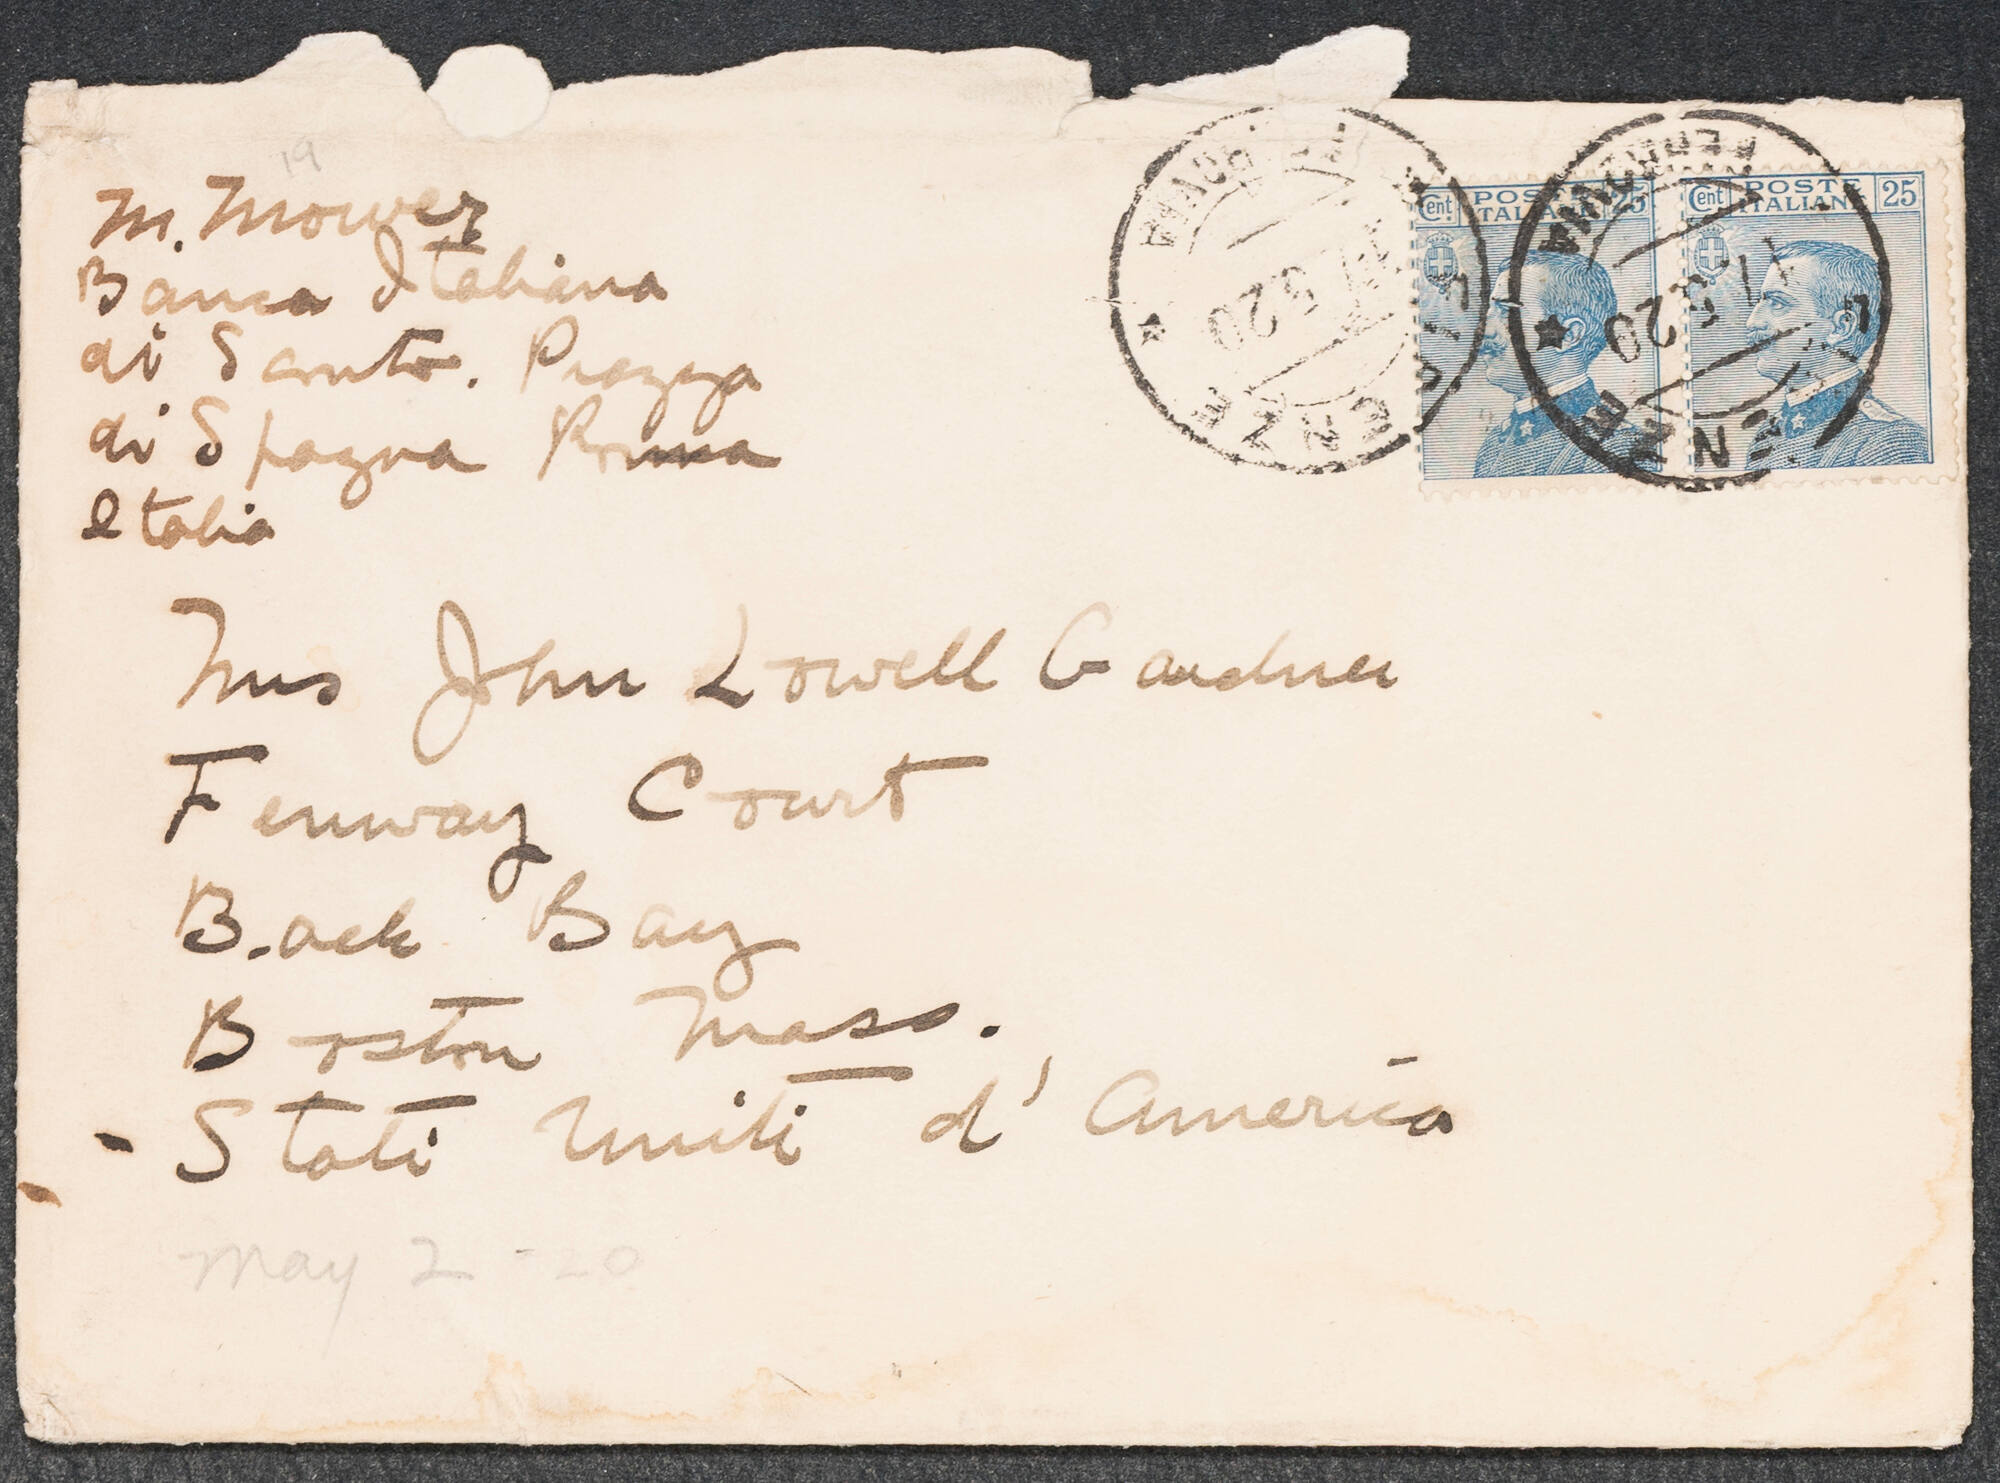 19
M. Mower
Banca Italiana
di Sconto. Piazza
di Spagna Roma
Italia
Cent. POSTE ITALIANE 25
Cent POSTE ITALIANE 25
FERROVIA
FIRENZE
Mrs John Lowell Gardner
Fenway Court
Back Bay
Boston Mass.
Stati Uniti d'America
May 2 - 20